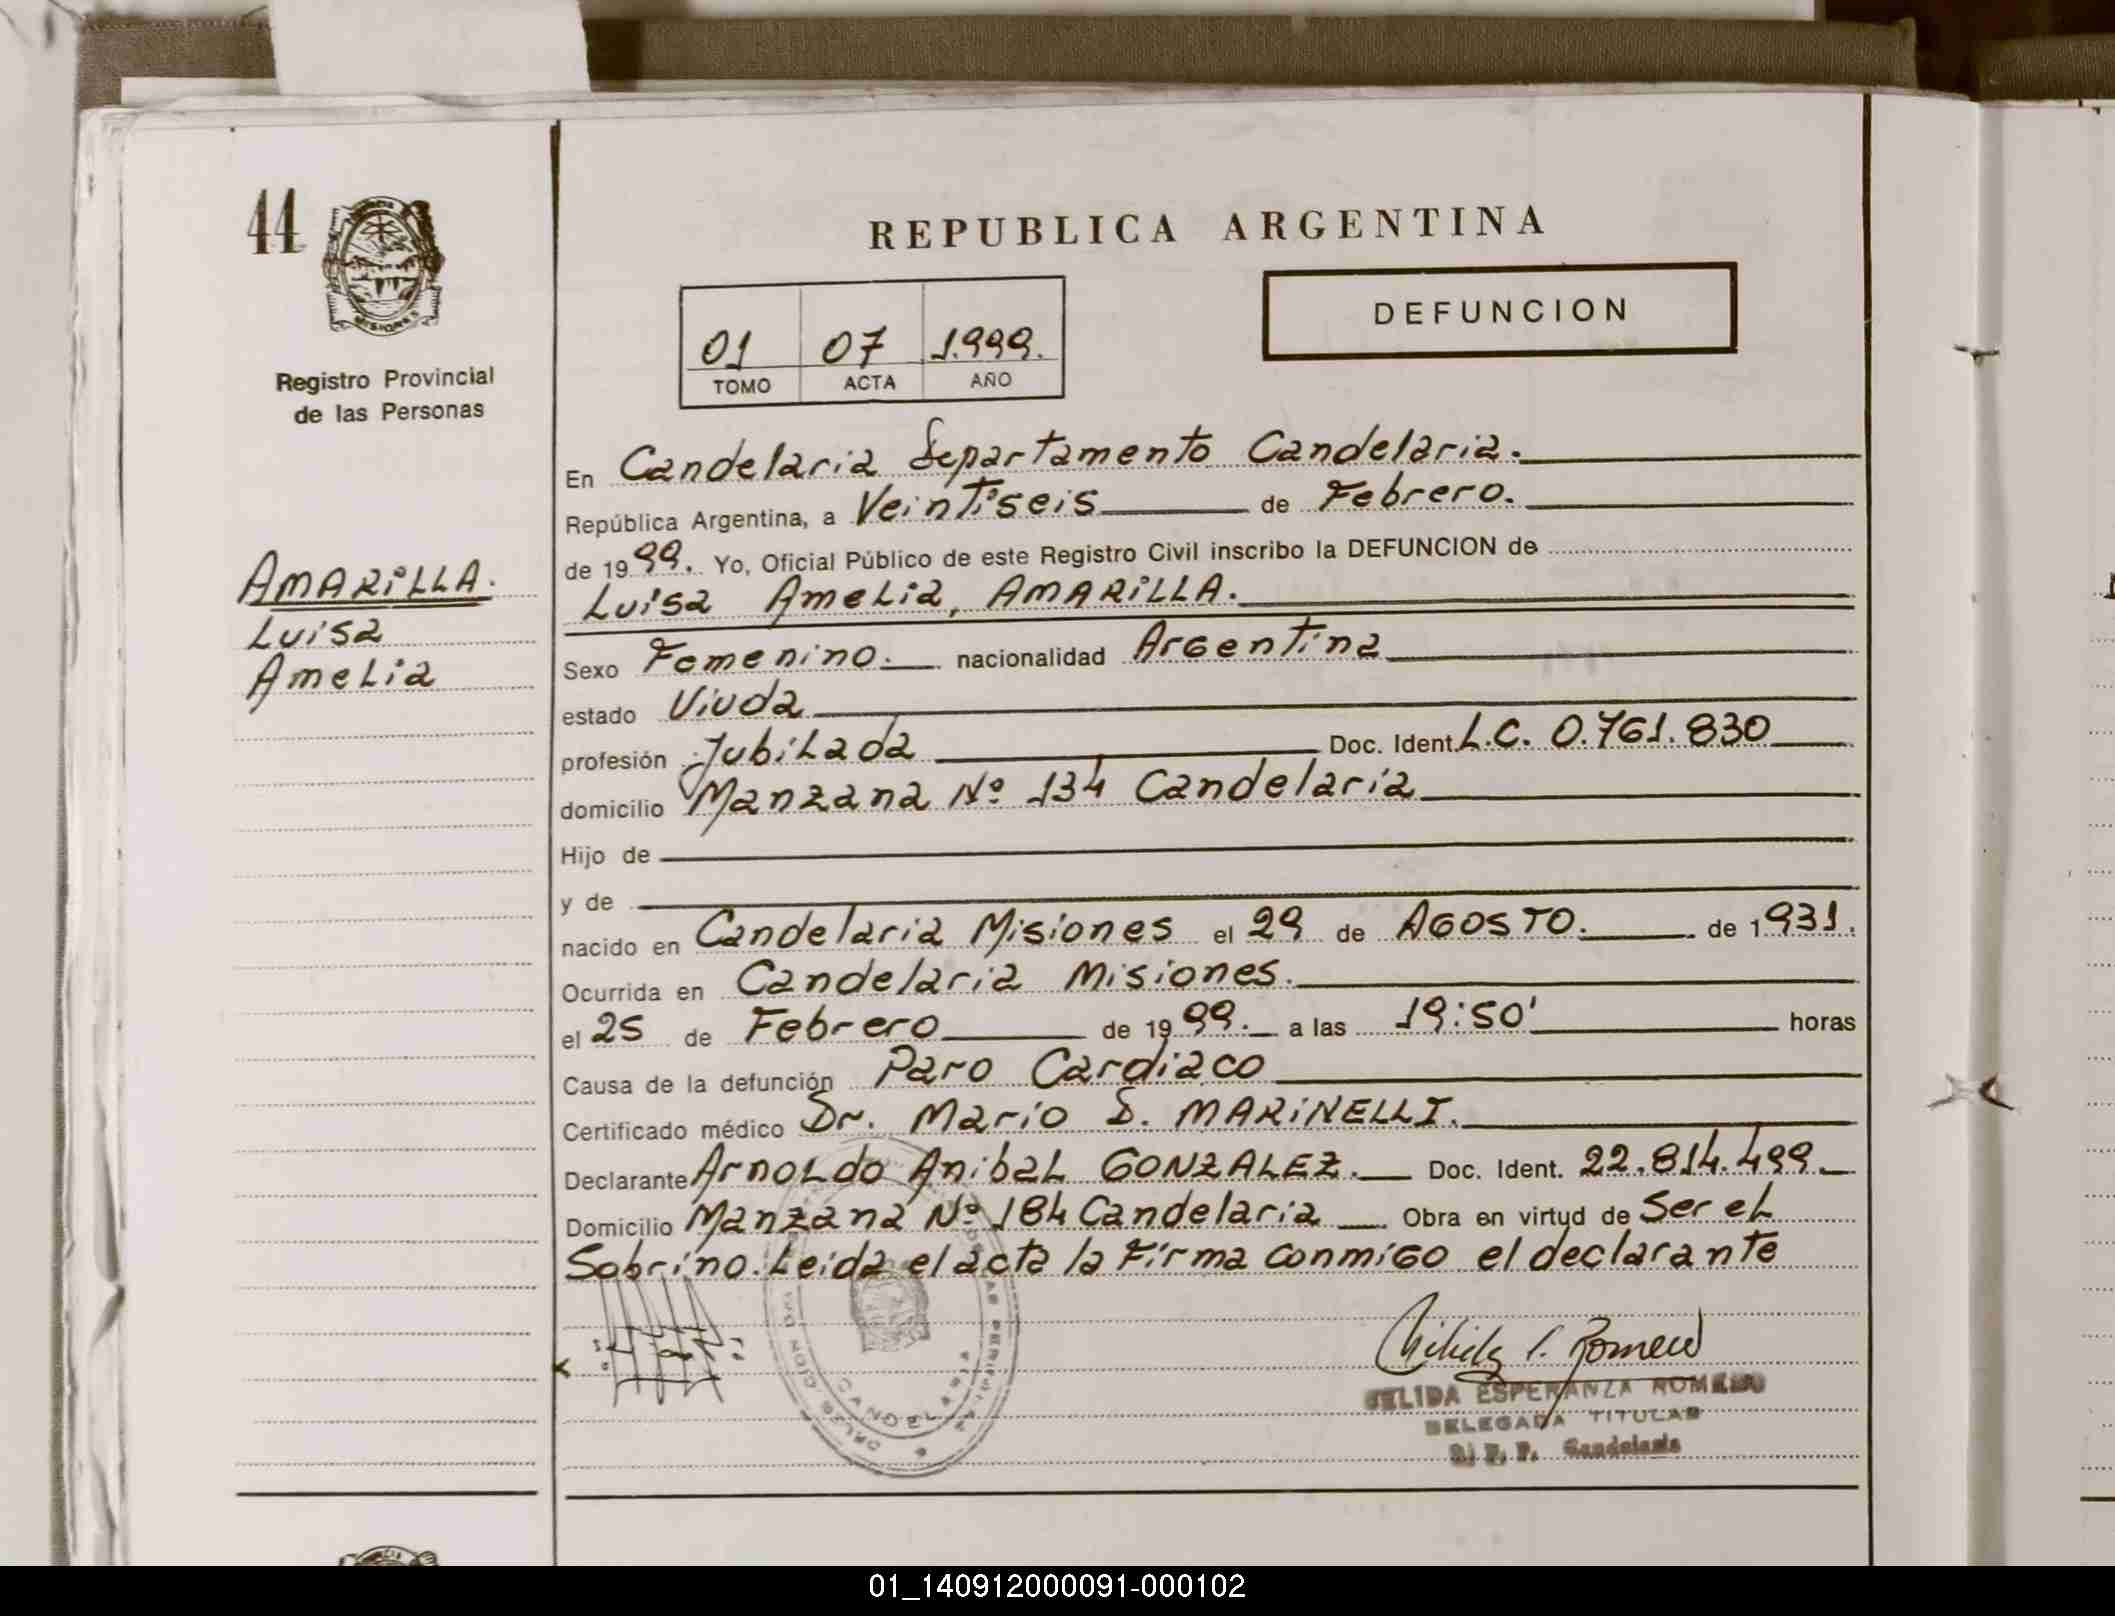 44
REPUBLICA ARGENTINA
MISIONES
Registro Provincial
de las Personas
DEFUNCION
01 07 1.999.
TOMO ACTA AÑO
En Candelaria Departamento Candelaria.
República Argentina, a Veintiseis de Febrero.
de 1999. Yo, Oficial Público de este Registro Civil inscribo la DEFUNCION de
Luisa Amelia, AMARILLA.
AMARILLA.
Luisa
Amelia
Sexo Femenino. nacionalidad Argentina
estado Viuda
profesión Jubilada Doc. Ident. L.C. 0.761.830
domicilio Manzana Nº 134 Candelaria
Hijo de
y de
nacido en Candelaria Misiones el 29 de AGOSTO. de 1931.
Ocurrida en Candelaria Misiones.
el 25 de Febrero de 1999. a las 19:50' horas
Causa de la defunción Paro Cardiaco
Certificado médico Dr. Mario D. MARINELLI.
Declarante Arnoldo Anibal GONZALEZ. Doc. Ident. 22.814.499
Domicilio Manzana Nº 184 Candelaria Obra en virtud de Ser el
Sobrino. Leida el acta la Firma conmigo el declarante
ESPERANZA ROMERO
DELEGADA TITULAR
Candelaria
01_140912000091-000102